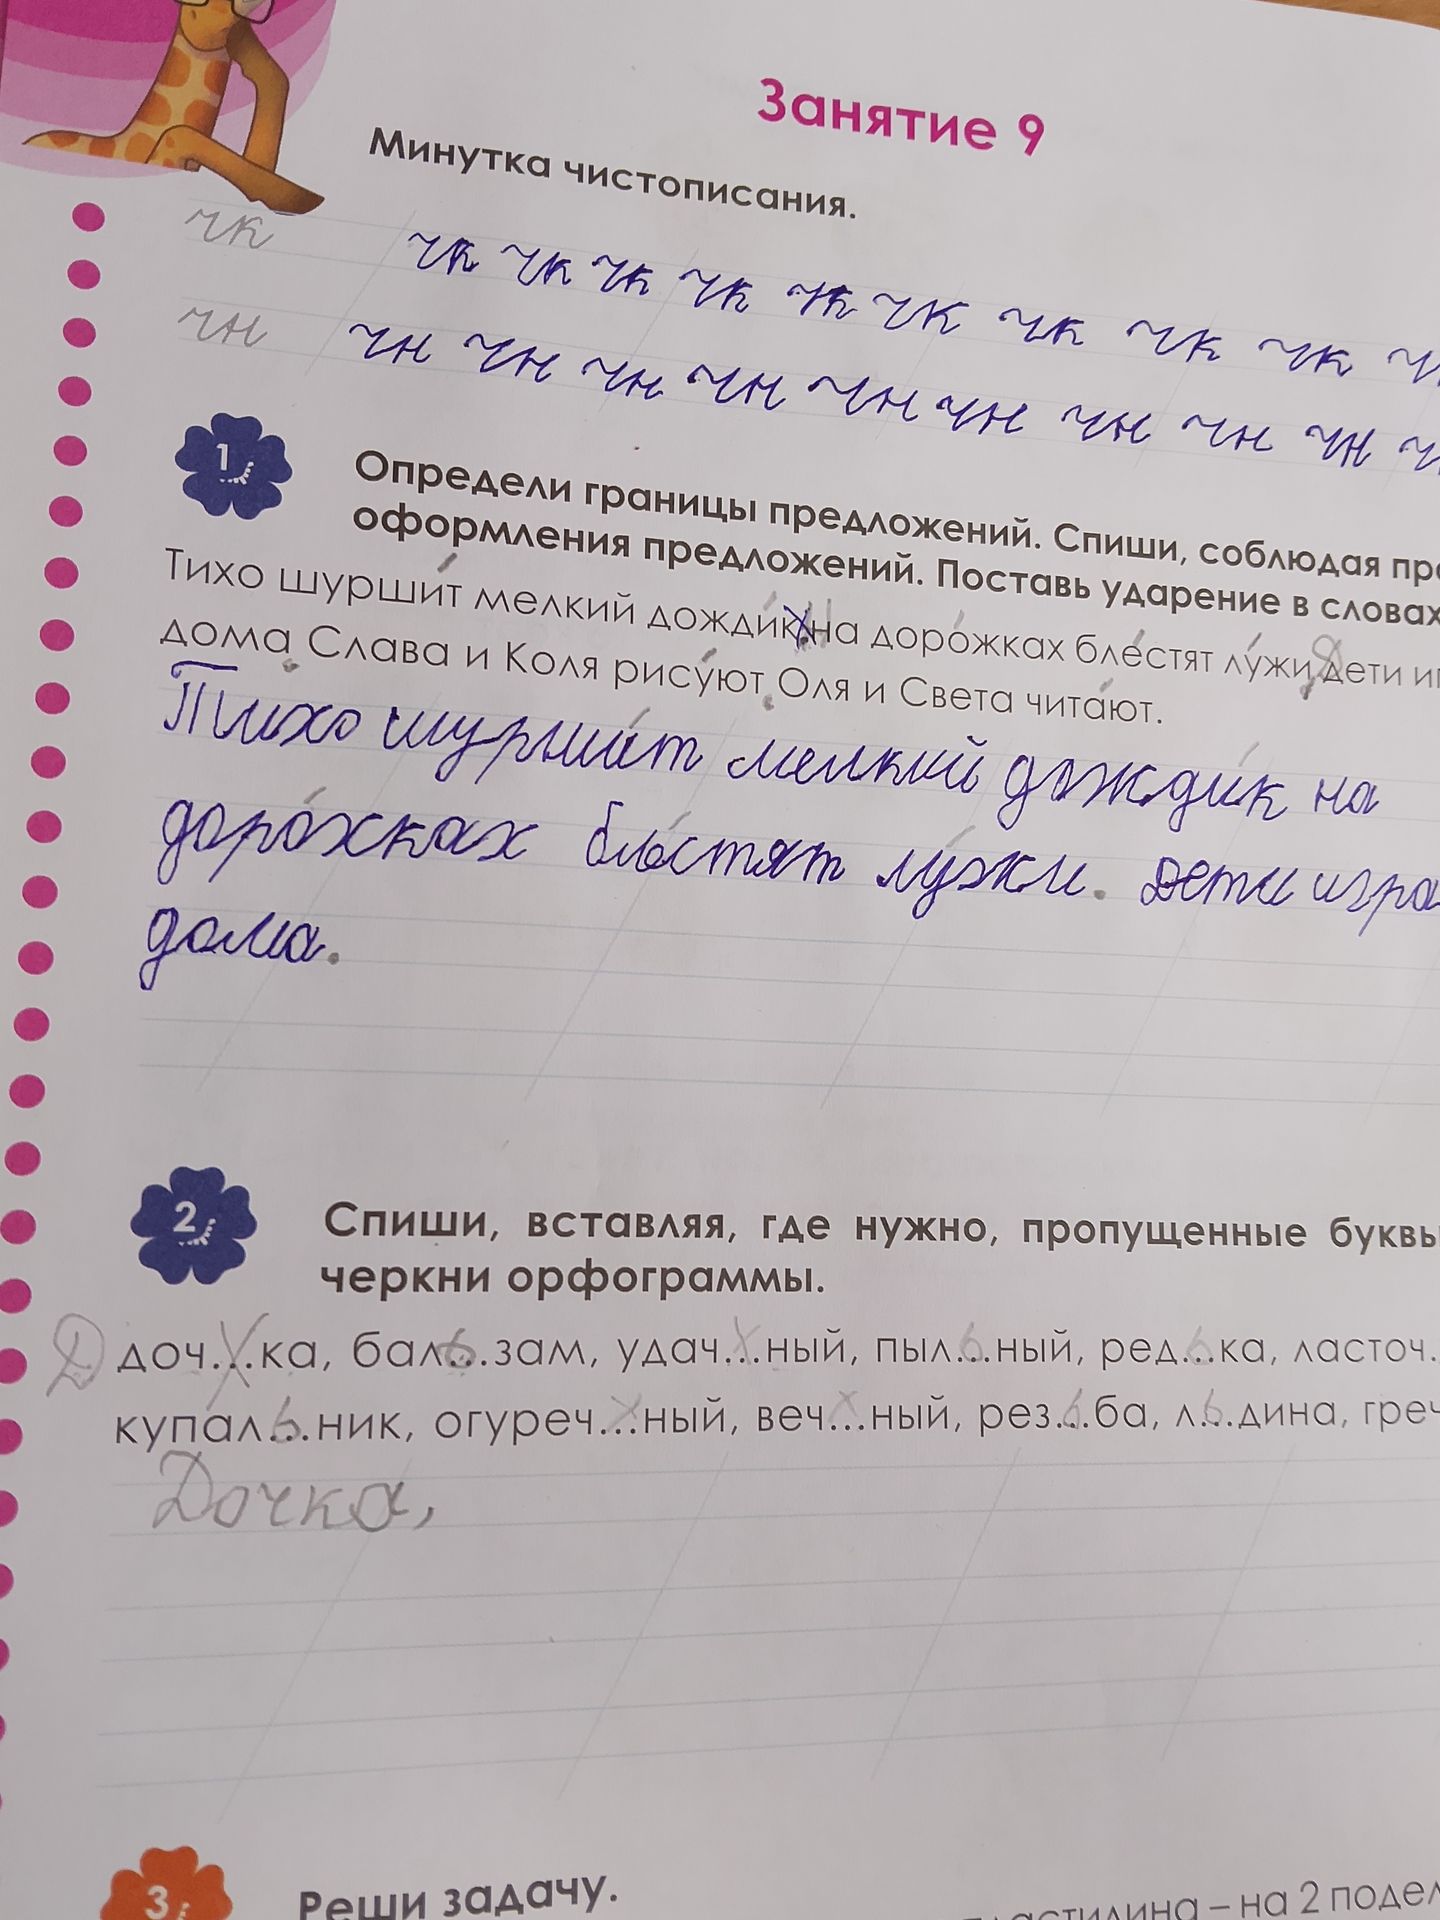 Занятие 9
Минутка чистописания.
чк чк чк чк чк чк чк чк чк чк
чн чн чн чн чн чн чн чн чн чн
1
Определи границы предложений. Спиши, соблюдая
оформления предложений. Поставь ударение в словах
Тихо шуршит мелкий дождик на дорожках блестят лужи Дети
дома. Слава и Коля рисуют. Оля и Света читают.
Тихо шуршит мелкий дождик на
дорожках блестят лужи. Дети
дома.
2
Спиши, вставляя, где нужно, пропущенные буквы
черкни орфограммы.
Д доч...ка, бал.ь..зам, удач...ный, пыл.ь..ный, ред.ь..ка, ласточ.
купал.ь..ник, огуреч...ный, веч...ный, рез.ь..ба, л.ь..дина, греч
Дочка,
3
Реши задачу.
– на 2